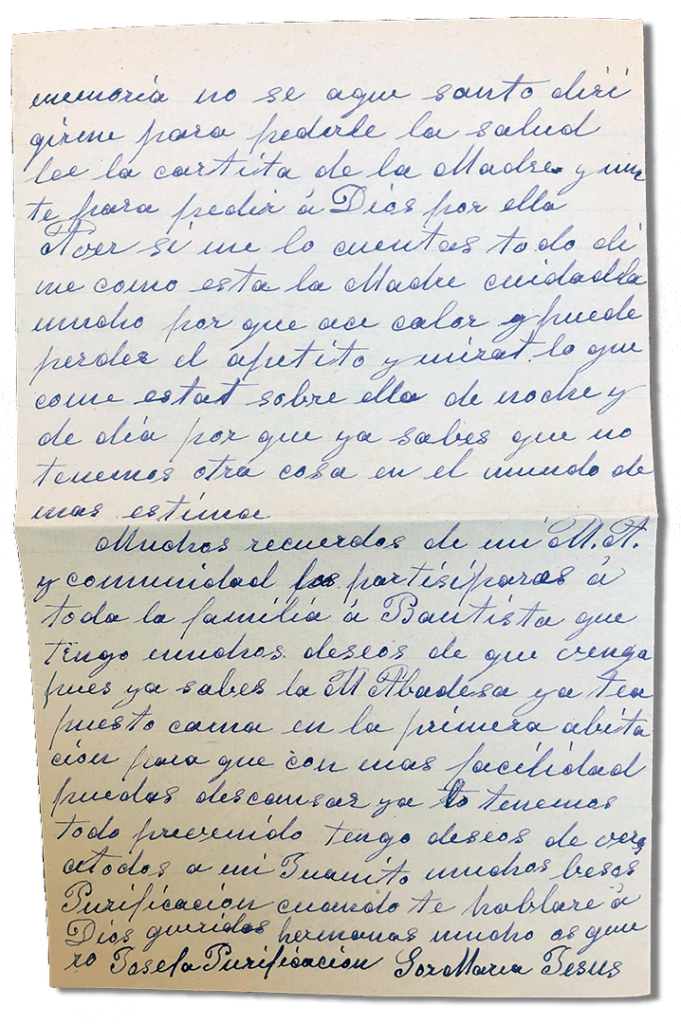 memoria no se aque santo diri
girme para pedirle la salud
lee la cartita de la Madre y
te para pedir á Dios por ella
Aver si me lo cuentas todo di
me como esta la Madre cuidadla
mucho por que ace calor y puede
perder el apetito y mirat lo que
come estat sobre ella de noche y
de dia por que ya sabes que no
tenemos otra cosa en el mundo de
mas estima
Muchos recuerdos de mi M. A.
y comunidad los partisiparas á
toda la familia á Bautista que
tengo muchos deseos de que venga
pues ya sabes la M Abadesa ya tea
puesto cama en la primera abita
ción para que con mas facilidad
puedas descansar ya lo tenemos
todo prevenido tengo deseos de veros
atodos a mi Juanito muchos besos
Purificación cuando te hablare á
Dios queridas hermanas mucho os quie
ro Josefa Purificación Sor Maria Jesus